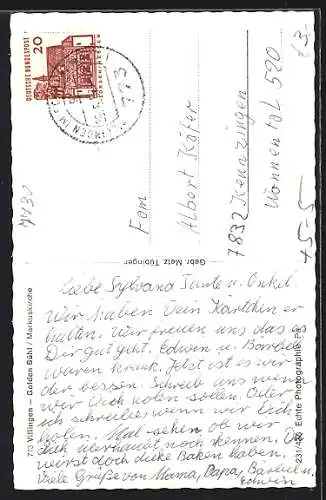 DEUTSCHE BUNDESPOST
20
773
Fam
Albert Käfer
7832 Kenzingen
Wonnental 520
7830
Gebr. Metz Tübingen
773 Villingen – Golden Bühl / Markuskirche
231/482 Echte Photographie
Liebe Sylvana Tante u. Onkel
Wir haben Dein Kärtchen er
halten. Wir freuen uns das es
Dir gut geht. Edwin u. Bärbel
waren krank. Jetzt ist es wir
der besser. Schreib uns wenn
wir Dich holen sollen. Oder
ich schreibe wenn wir Dich
holen. Mal sehen ob wir
dich überhaupt noch kennen. Du
wirst doch dicke Backen haben.
Viele Grüße von Mama, Papa, Bärbel u.
Edwin